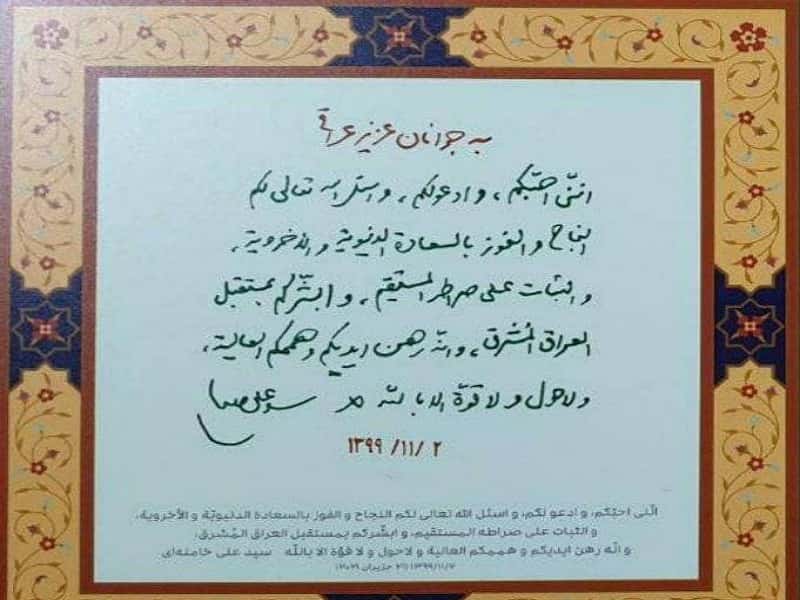 به جوانان عزیز عراق
اننی احبّکم، و ادعولکم، و اسئل الله تعالی لکم
النجاح و الفوز بالسعادة الدنیویة و الاخرویة،
و الثبات علی صراطه المستقیم، و ابشّرکم بمستقبل
العراق المُشرق، و انّه رهن ایدیکم و هممکم العالیة،
و لاحول و لا قوّة الا بالله سید علی خامنه‌ای
۱۳۹۹/۱۱/۲
انّنی احبّکم، و ادعو لکم، و اسئل الله تعالی لکم النجاح و الفوز بالسعادة الدنیویّة و الأخرویة،
و الثبات علی صراطه المستقیم، و ابشّرکم بمستقبل العراق المُشرق،
و انّه رهن ایدیکم و هممکم العالیة و لاحول و لا قوّة الا بالله سید علی خامنه‌ای